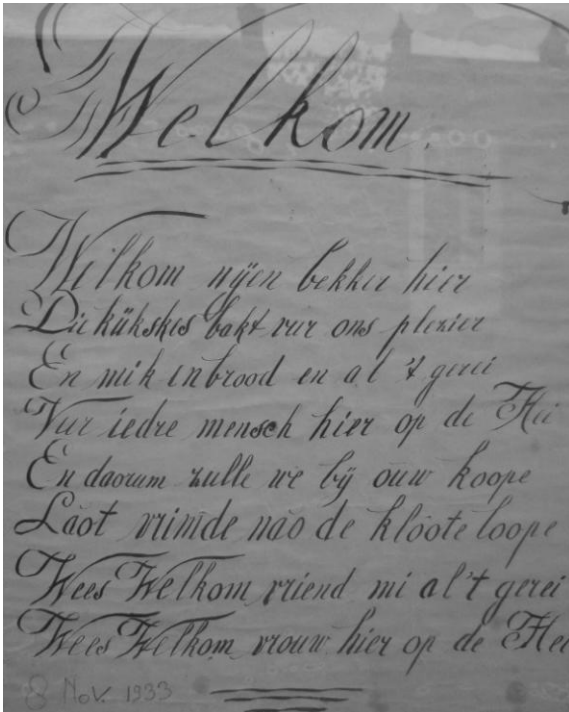 Welkom.
Wilkom nÿen bekker hier
Die kükskes bakt vur ons plezier
En mik en brood en al 't gerei
Vur iedre mensch hier op de Hei
En daorum zulle we bÿ ouw koope
Lāot vrimde nāo de klōote loope
Wees Welkom vriend mi al 't gerei
Wees Welkom vrouw hier op de Hei
8 Nov. 1933